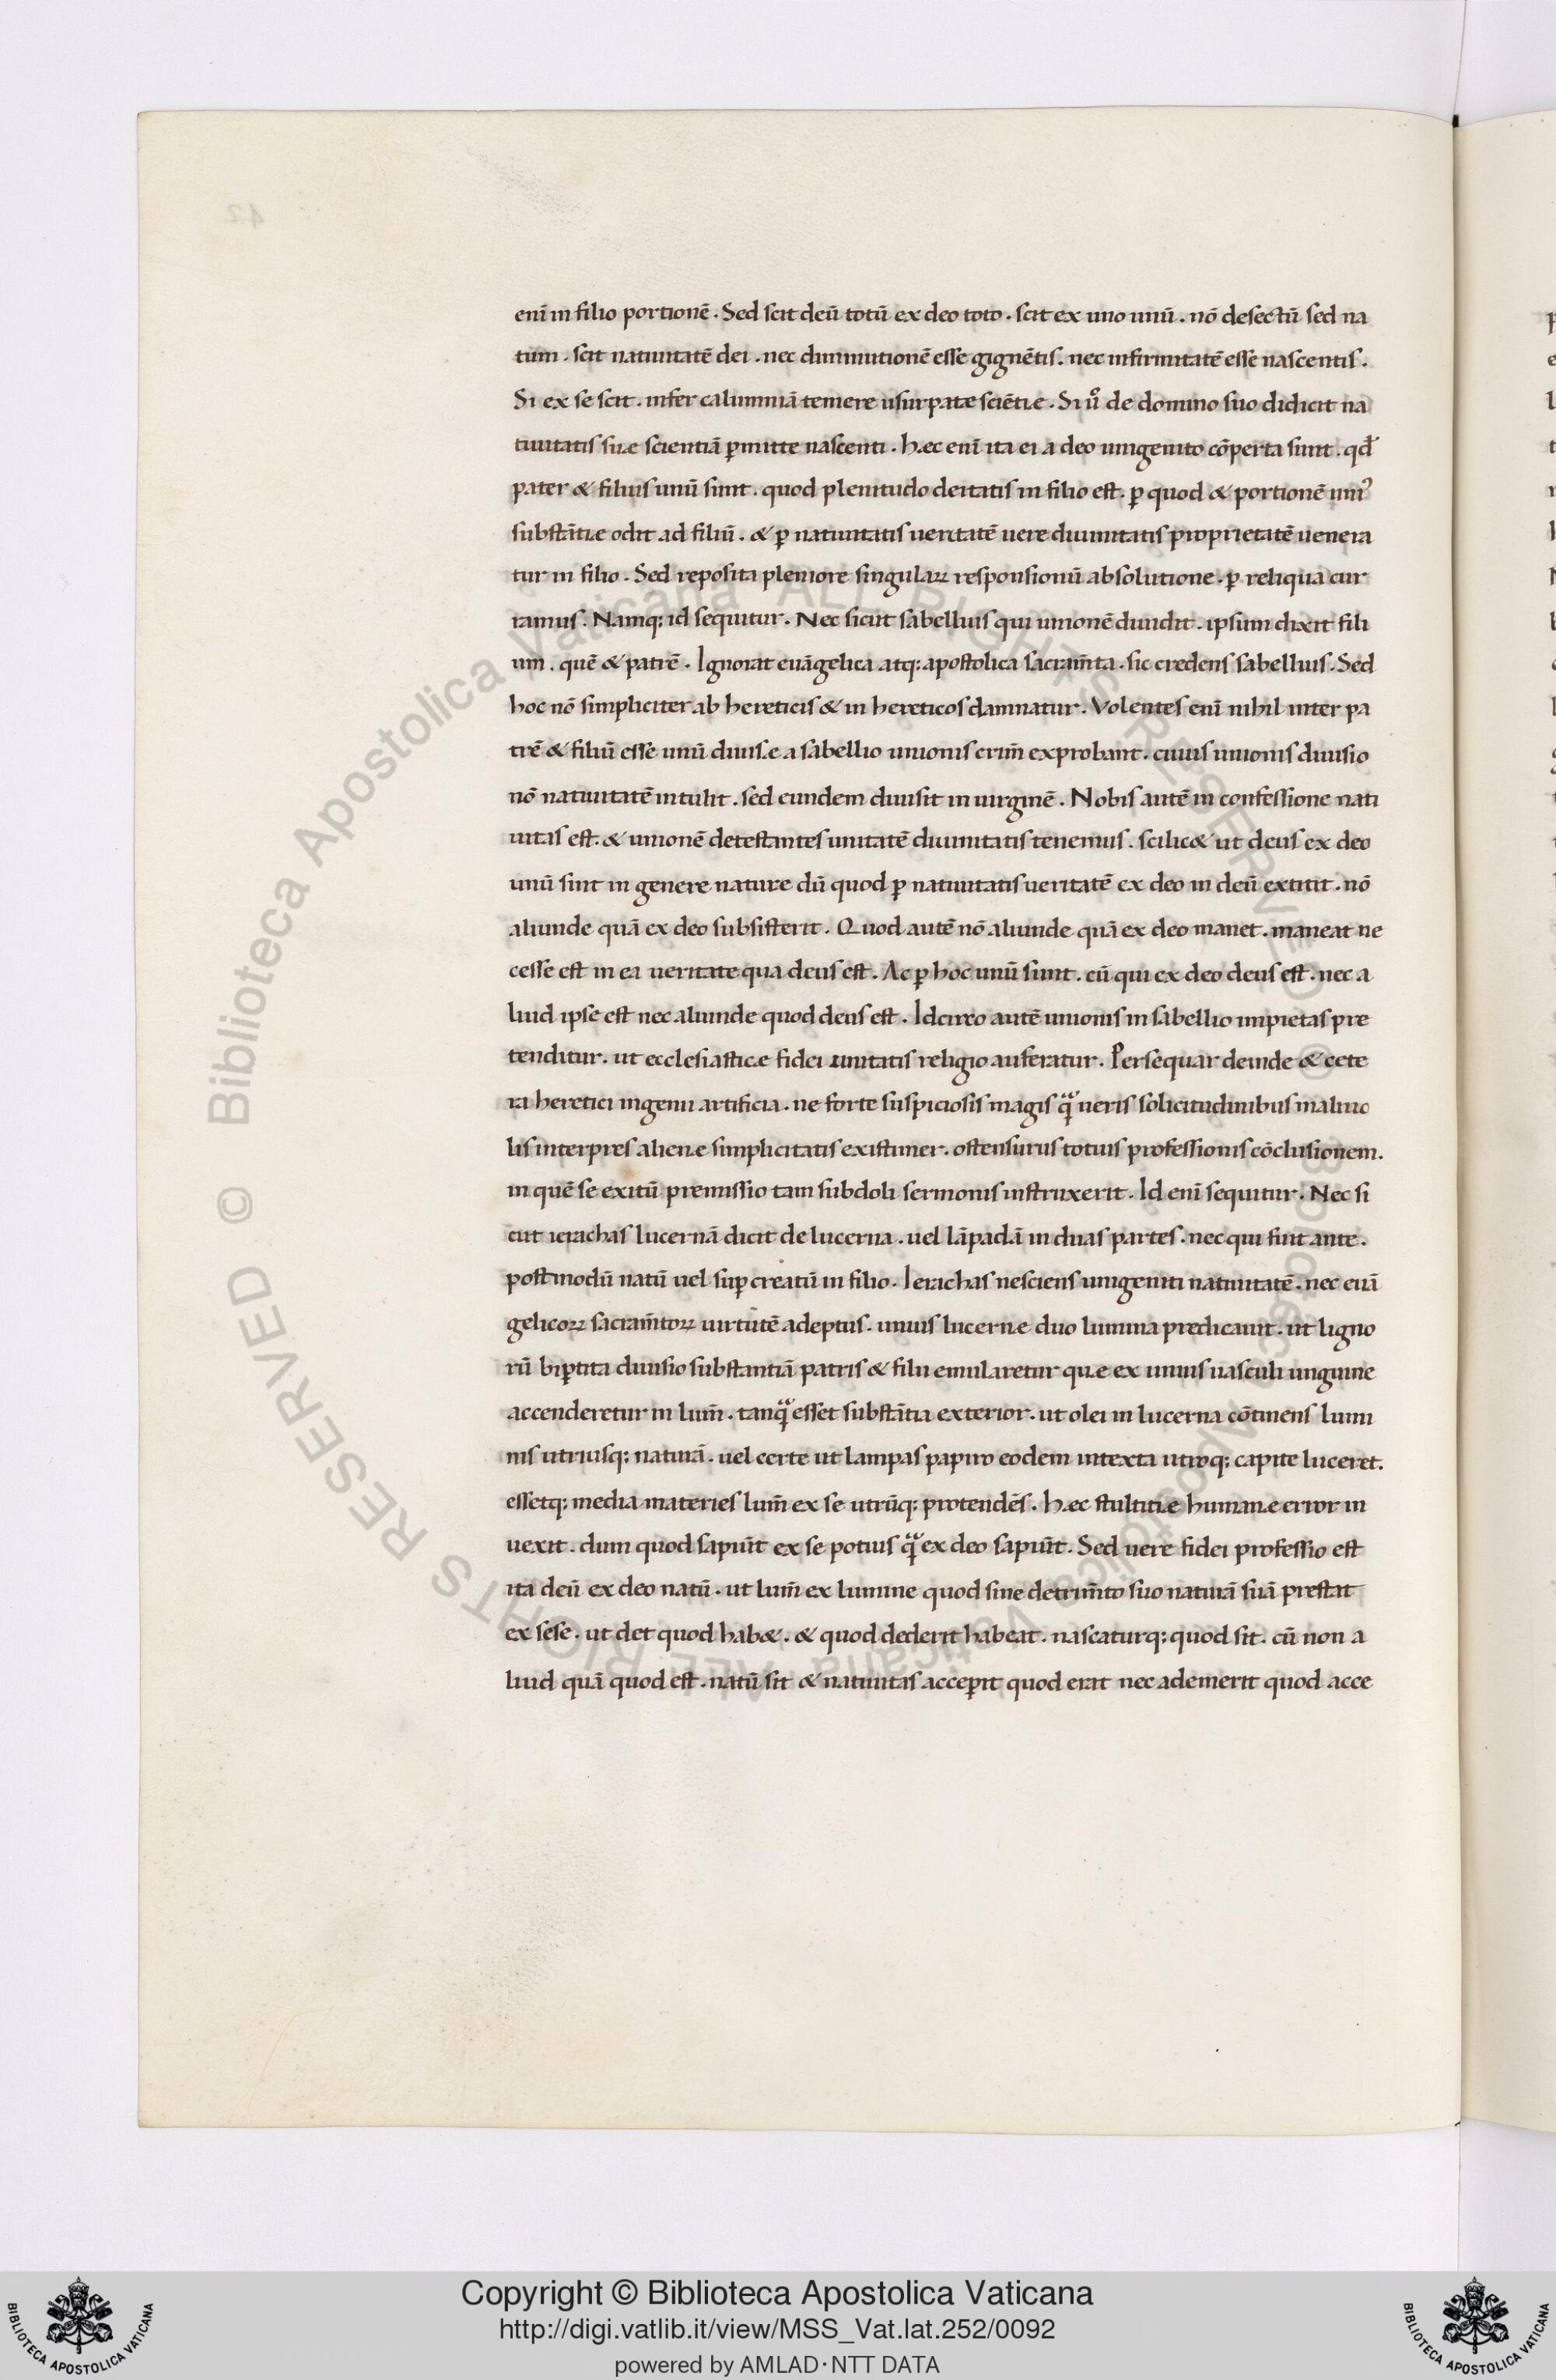 enī in filio portionē. Sed scit deū totū ex deo toto. scit ex uno unū. nō desectū sed na
tum. scit natiuitatē dei. nec diminutionē esse gignētis. nec infirmitatē esse nascentis.
Si ex se scit. infer calumniā temere usurpatæ sciētiæ. Si uͦ de domino suo didicit na
tiuitatis suæ scientiā ꝑmitte nascenti. hæc enī ita ei a deo unigenito cōperta sunt. qđ
pater & filius unū sunt. quod plenitudo deitatis in filio est. ꝑ quod & portionē uniꝰ
substātiæ odit ad filiū. & ꝑ natiuitatis ueritatē uere diuinitatis proprietatē uenera
tur in filio. Sed reposita pleniore singulaꝝ responsionū absolutione. ꝑ reliqua cur
ramus. Namq; id sequitur. Nec sicut sabellius qui unionē diuidit. ipsum dixit fili
um. quē & patrē. Ignorat euāgelica atq; apostolica sacram̄ta. sic credens sabellius. Sed
hoc nō simpliciter ab hereticis & in hereticos damnatur. Volentes enī nihil inter pa
trē & filiū esse unū diuisæ a sabellio unionis crim̄ exprobant. cuius unionis diuisio
nō natiuitatē intulit. sed eundem diuisit in uirginē. Nobis autē in confessione nati
uitas est. & unionē detestantes unitatē diuinitatis tenemus. scilic& ut deus ex deo
unū sint in genere naturæ dū quod ꝑ natiuitatis ueritatē ex deo in deū extitit. nō
aliunde quā ex deo subsisterit. Quod autē nō aliunde quā ex deo manet. maneat ne
cesse est in ea ueritate qua deus est. Ac ꝑ hoc unū sunt. cū qui ex deo deus est. nec a
liud ipse est nec aliunde quod deus est. Idcirco autē unionis in sabellio impietas pre
tenditur. ut ecclesiasticæ fidei unitatis religio auferatur. Persequar deinde & cete
ra heretici ingenii artificia. ne forte suspiciosis magis qᷓ ueris solicitudinibus maliuo
lis interpres alienæ simplicitatis existimer. ostensurus totius professionis cōclusionem.
in quē se exitū premissio tam subdoli sermonis instruxerit. Id enī sequitur. Nec si
cut ierachas lucernā dicit de lucerna. uel lāpadā in duas partes. nec qui fuit ante.
postmodū natū uel suꝑ creatū in filio. Ierachas nesciens unigeniti natiuitatē. nec euā
gelicoꝝ sacram̄toꝝ uirtutē adeptus. unius lucernæ duo lumina predicauit. ut ligno
rū biꝑtita diuisio substantiā patris & filii emularetur quæ ex unius uasculi unguine
accenderetur in lum̄. tanqᷓ esset substātia exterior. ut olei in lucerna cōtinens lumi
nis utriusq; naturā. uel certe ut lampas papiro eodem intexta utroq; capite luceret.
essetq; media materies lum̄ ex se utrūq; protendēs. hæc stultitiæ humanæ error in
uexit. dum quod sapiūt ex se potius qᷓ ex deo sapiūt. Sed uere fidei professio est
ita deū ex deo natū. ut lum̄ ex lumine quod sine detrim̄to suo naturā suā prestat
ex sese. ut det quod hab&. & quod dederit habeat. nascaturq; quod sit. cū non a
liud quā quod est. natū sit & natiuitas acceꝑit quod erat nec ademerit quod acce
Copyright © Biblioteca Apostolica Vaticana
http://digi.vatlib.it/view/MSS_Vat.lat.252/0092
powered by AMLAD·NTT DATA